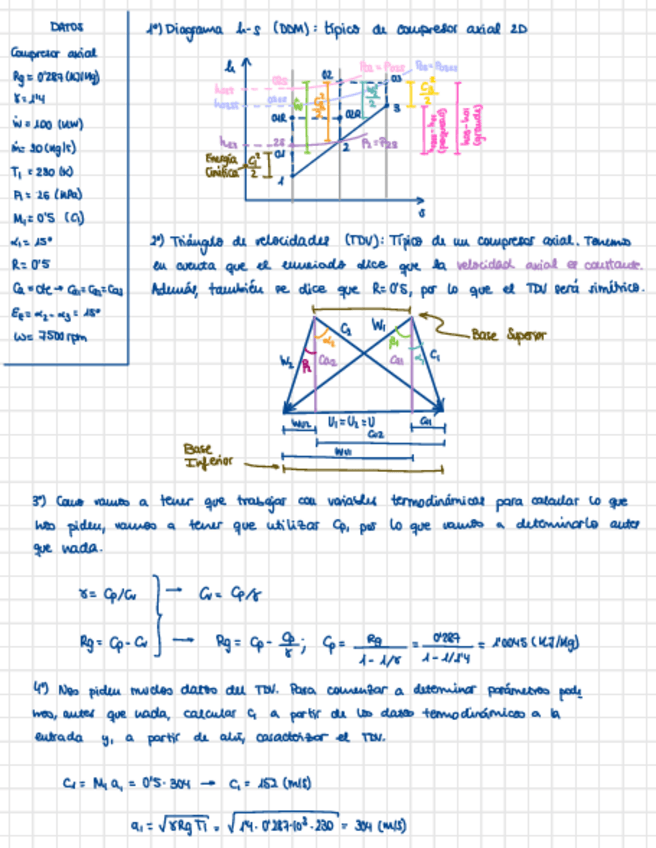 DATOS
Compresor axial
Rg = 0'287 (KJ/Kg)
γ = 1'4
ẇ = 100 (KW)
ṁ = 30 (Kg/s)
T₁ = 230 (K)
P₁ = 26 (KPa)
M₁ = 0'5 (C₁)
α₁ = 15°
R = 0'5
Ca = cte → Ca₁ = Ca₂ = Ca₃
ε_R = α₂ - α₃ = 15°
ω = 7500 rpm
1º) Diagrama h-s (DDM): típico de compresor axial 2D
h
02
03
3
2
2s
01
1
P₂ = P₂s
Energía
Cinética
C₁²/2
s
2º) Triángulo de velocidades (TDV): Típico de un compresor axial. Tenemos
en cuenta que el enunciado dice que la velocidad axial es constante.
Además, también se dice que R = 0'5, por lo que el TDV será simétrico.
Base Superior
W₂ C₂ W₁ C₁
β₂ α₂ Ca₂ β₁ Ca₁ α₁
Wu₂ U₁ = U₂ = U Cu₁
Cu₂
Wu₁
Base
Inferior
3º) Como vamos a tener que trabajar con variables termodinámicas para calcular lo que
nos piden, vamos a tener que utilizar Cp, por lo que vamos a determinarlo antes
que nada.
γ = Cp/Cv → Cv = Cp/γ
Rg = Cp - Cv → Rg = Cp - Cp/γ ; Cp = Rg/(1 - 1/γ) = 0'287/(1 - 1/1'4) = 1'0045 (KJ/Kg)
4º) Nos piden muchos datos del TDV. Para comenzar a determinar parámetros pode
mos, antes que nada, calcular C₁ a partir de los datos termodinámicos a la
entrada y, a partir de ahí, caracterizar el TDV.
C₁ = M₁ a₁ = 0'5 · 304 → C₁ = 152 (m/s)
a₁ = √(γ Rg T₁) = √(1'4 · 0'287 · 10³ · 230) = 304 (m/s)